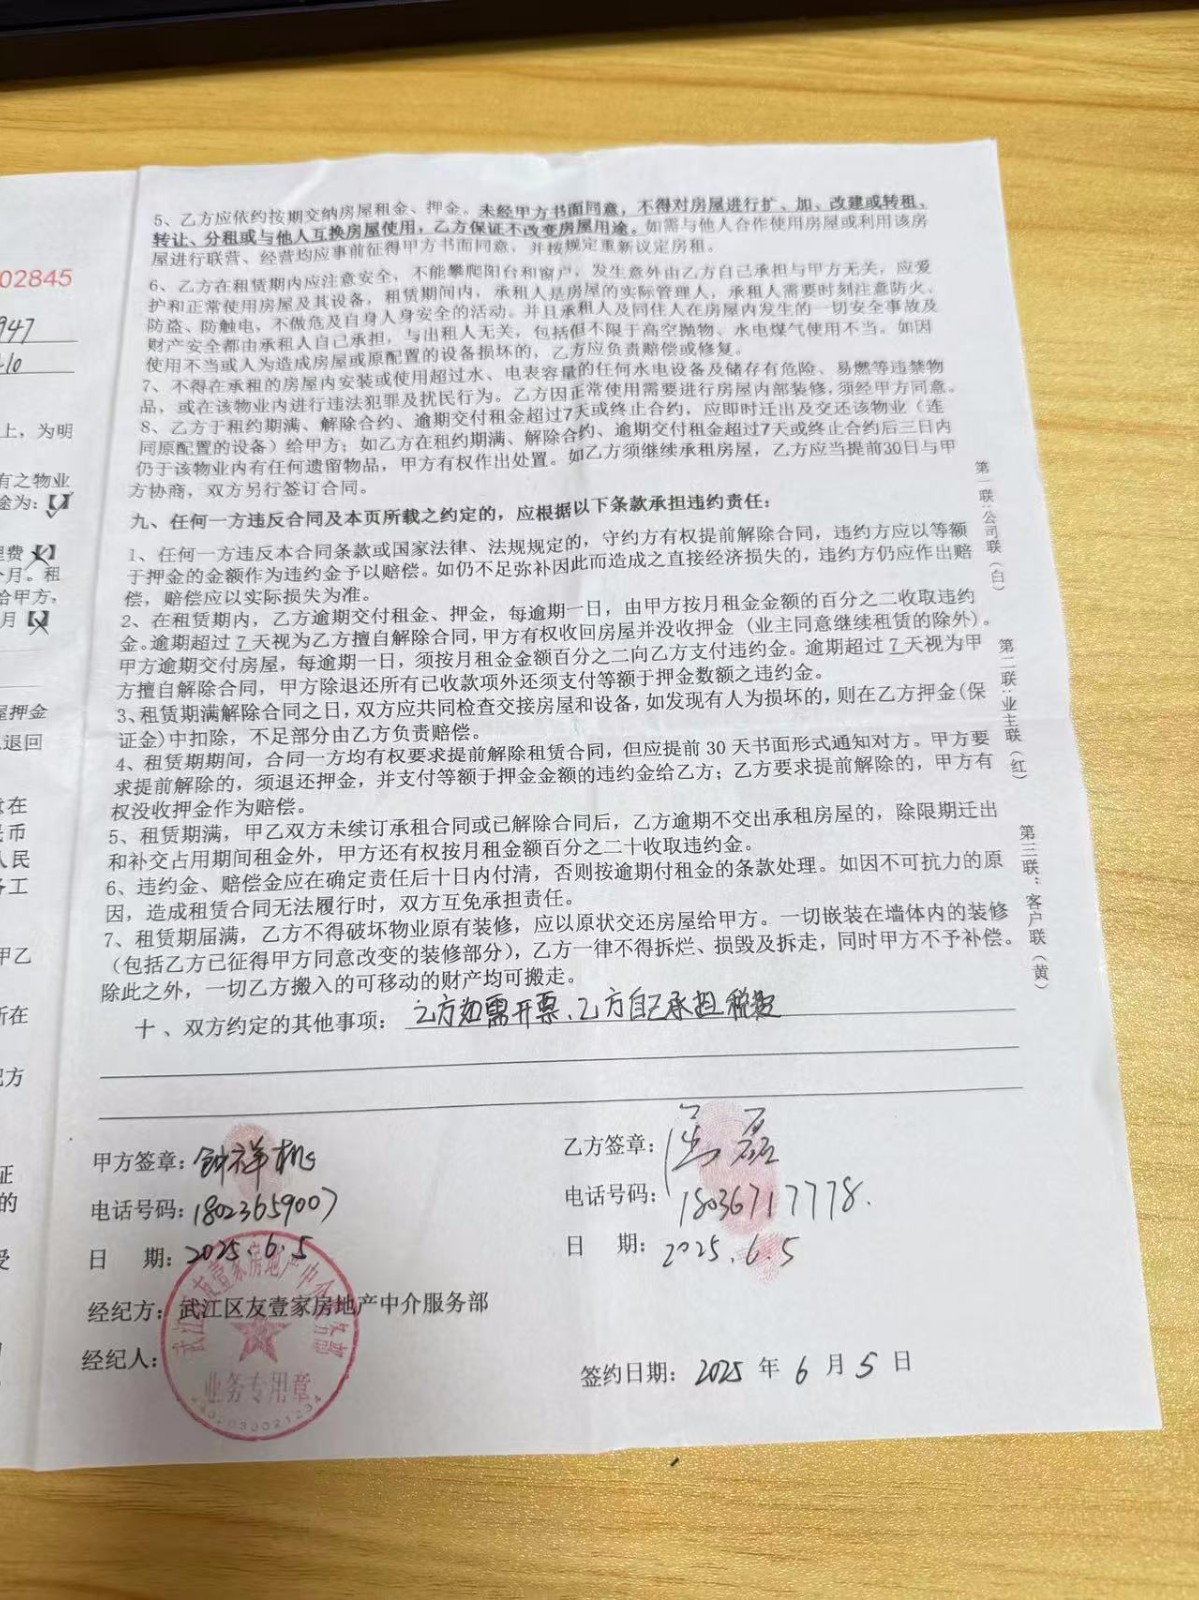 02845
947
上，为明
有之物业
途为:【】
理费【】
个月。租
给甲方，
月【】
屋押金
退回
意在
民币
人民
务工
甲乙
所在
配方
证
的
受
5、乙方应依约按期交纳房屋租金、押金。未经甲方书面同意，不得对房屋进行扩、加、改建或转租、
转让、分租或与他人互换房屋使用，乙方保证不改变房屋用途。如需与他人合作使用房屋或利用该房
屋进行联营、经营均应事前征得甲方书面同意，并按规定重新议定房租。
6、乙方在租赁期内应注意安全，不能攀爬阳台和窗户，发生意外由乙方自己承担与甲方无关，应爱
护和正常使用房屋及其设备，租赁期间内，承租人是房屋的实际管理人，承租人需要时刻注意防火、
防盗、防触电，不做危及自身人身安全的活动。并且承租人及同住人在房屋内发生的一切安全事故及
财产安全都由承租人自己承担，与出租人无关，包括但不限于高空抛物、水电煤气使用不当。如因
使用不当或人为造成房屋或原配置的设备损坏的，乙方应负责赔偿或修复。
7、不得在承租的房屋内安装或使用超过水、电表容量的任何水电设备及储存有危险、易燃等违禁物
品，或在该物业内进行违法犯罪及扰民行为。乙方因正常使用需要进行房屋内部装修，须经甲方同意。
8、乙方于租约期满、解除合约、逾期交付租金超过7天或终止合约，应即时迁出及交还该物业（连
同原配置的设备）给甲方；如乙方在租约期满、解除合约、逾期交付租金超过7天或终止合约后三日内
仍于该物业内有任何遗留物品，甲方有权作出处置。如乙方须继续承租房屋，乙方应当提前30日与甲
方协商，双方另行签订合同。
九、任何一方违反合同及本页所载之约定的，应根据以下条款承担违约责任：
1、任何一方违反本合同条款或国家法律、法规规定的，守约方有权提前解除合同，违约方应以等额
于押金的金额作为违约金予以赔偿。如仍不足弥补因此而造成之直接经济损失的，违约方仍应作出赔
偿，赔偿应以实际损失为准。
2、在租赁期内，乙方逾期交付租金、押金，每逾期一日，由甲方按月租金金额的百分之二收取违约
金。逾期超过 7 天视为乙方擅自解除合同，甲方有权收回房屋并没收押金（业主同意继续租赁的除外）。
甲方逾期交付房屋，每逾期一日，须按月租金金额百分之二向乙方支付违约金。逾期超过 7 天视为甲
方擅自解除合同，甲方除退还所有已收款项外还须支付等额于押金数额之违约金。
3、租赁期满解除合同之日，双方应共同检查交接房屋和设备，如发现有人为损坏的，则在乙方押金(保
证金)中扣除，不足部分由乙方负责赔偿。
4、租赁期期间，合同一方均有权要求提前解除租赁合同，但应提前 30 天书面形式通知对方。甲方要
求提前解除的，须退还押金，并支付等额于押金金额的违约金给乙方；乙方要求提前解除的，甲方有
权没收押金作为赔偿。
5、租赁期满，甲乙双方未续订承租合同或已解除合同后，乙方逾期不交出承租房屋的，除限期迁出
和补交占用期间租金外，甲方还有权按月租金额百分之二十收取违约金。
6、违约金、赔偿金应在确定责任后十日内付清，否则按逾期付租金的条款处理。如因不可抗力的原
因，造成租赁合同无法履行时，双方互免承担责任。
7、租赁期届满，乙方不得破坏物业原有装修，应以原状交还房屋给甲方。一切嵌装在墙体内的装修
（包括乙方已征得甲方同意改变的装修部分），乙方一律不得拆烂、损毁及拆走，同时甲方不予补偿。
除此之外，一切乙方搬入的可移动的财产均可搬走。
十、双方约定的其他事项：乙方如需开票、乙方自己承担税费
甲方签章：钟祥机
电话号码：18023659007
日 期：2025.6.5
经纪方：武江区友壹家房地产中介服务部
经纪人：
乙方签章：磊
电话号码：18036717778.
日 期：2025.6.5
签约日期：2025 年 6 月 5 日
业务专用章
第一联：公司联（白）
第二联：业主联（红）
第三联：客户联（黄）